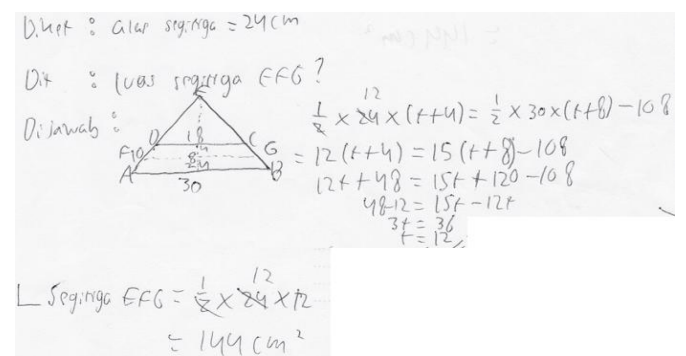 Diket : alas segitiga = 24 cm
Dit : luas segitiga EFG ?
Dijawab :
E
D 18 C
F 10 8 4 24 G
A 30 B
1/2 × 24 12 × (t+4) = 1/2 × 30 × (t+8) - 108
= 12 (t+4) = 15 (t+8) - 108
12t + 48 = 15t + 120 - 108
48-12 = 15t - 12t
3t = 36
t = 12
L Segitiga EFG = 1/2 × 24 12 × 12
= 144 cm²